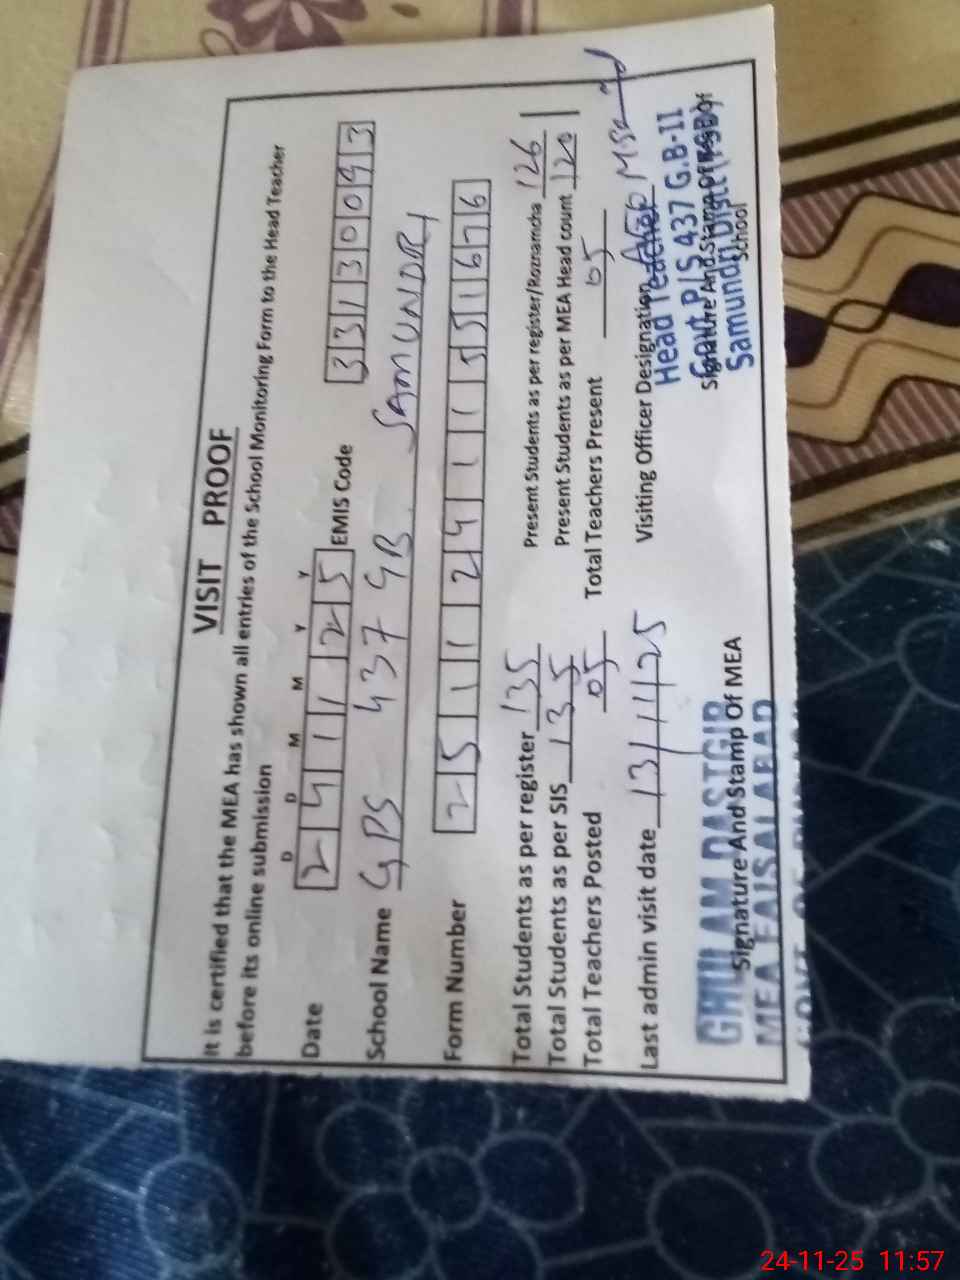 VISIT PROOF
It is certified that the MEA has shown all entries of the School Monitoring Form to the Head Teacher
before its online submission
D D M M Y Y
Date 2 4 1 1 2 5 EMIS Code 3 3 1 3 0 0 9 3
School Name GPS 437 GB SAMUNDRI
Form Number 2 5 1 1 2 4 1 1 5 5 1 6 7 6
Total Students as per register 135 Present Students as per register/Roznamcha 126
Total Students as per SIS 135 Present Students as per MEA Head count 120
Total Teachers Posted 05 Total Teachers Present 05
Last admin visit date 13/11/25 Visiting Officer Designation AEO
Head Teacher
GHULAM DASTGIR Govt P/S 437 G.B-II
Signature And Stamp Of MEA Signature And Stamp Of
MEA FAISALABAD Samundri Distt (FSD)
School
24-11-25 11:57